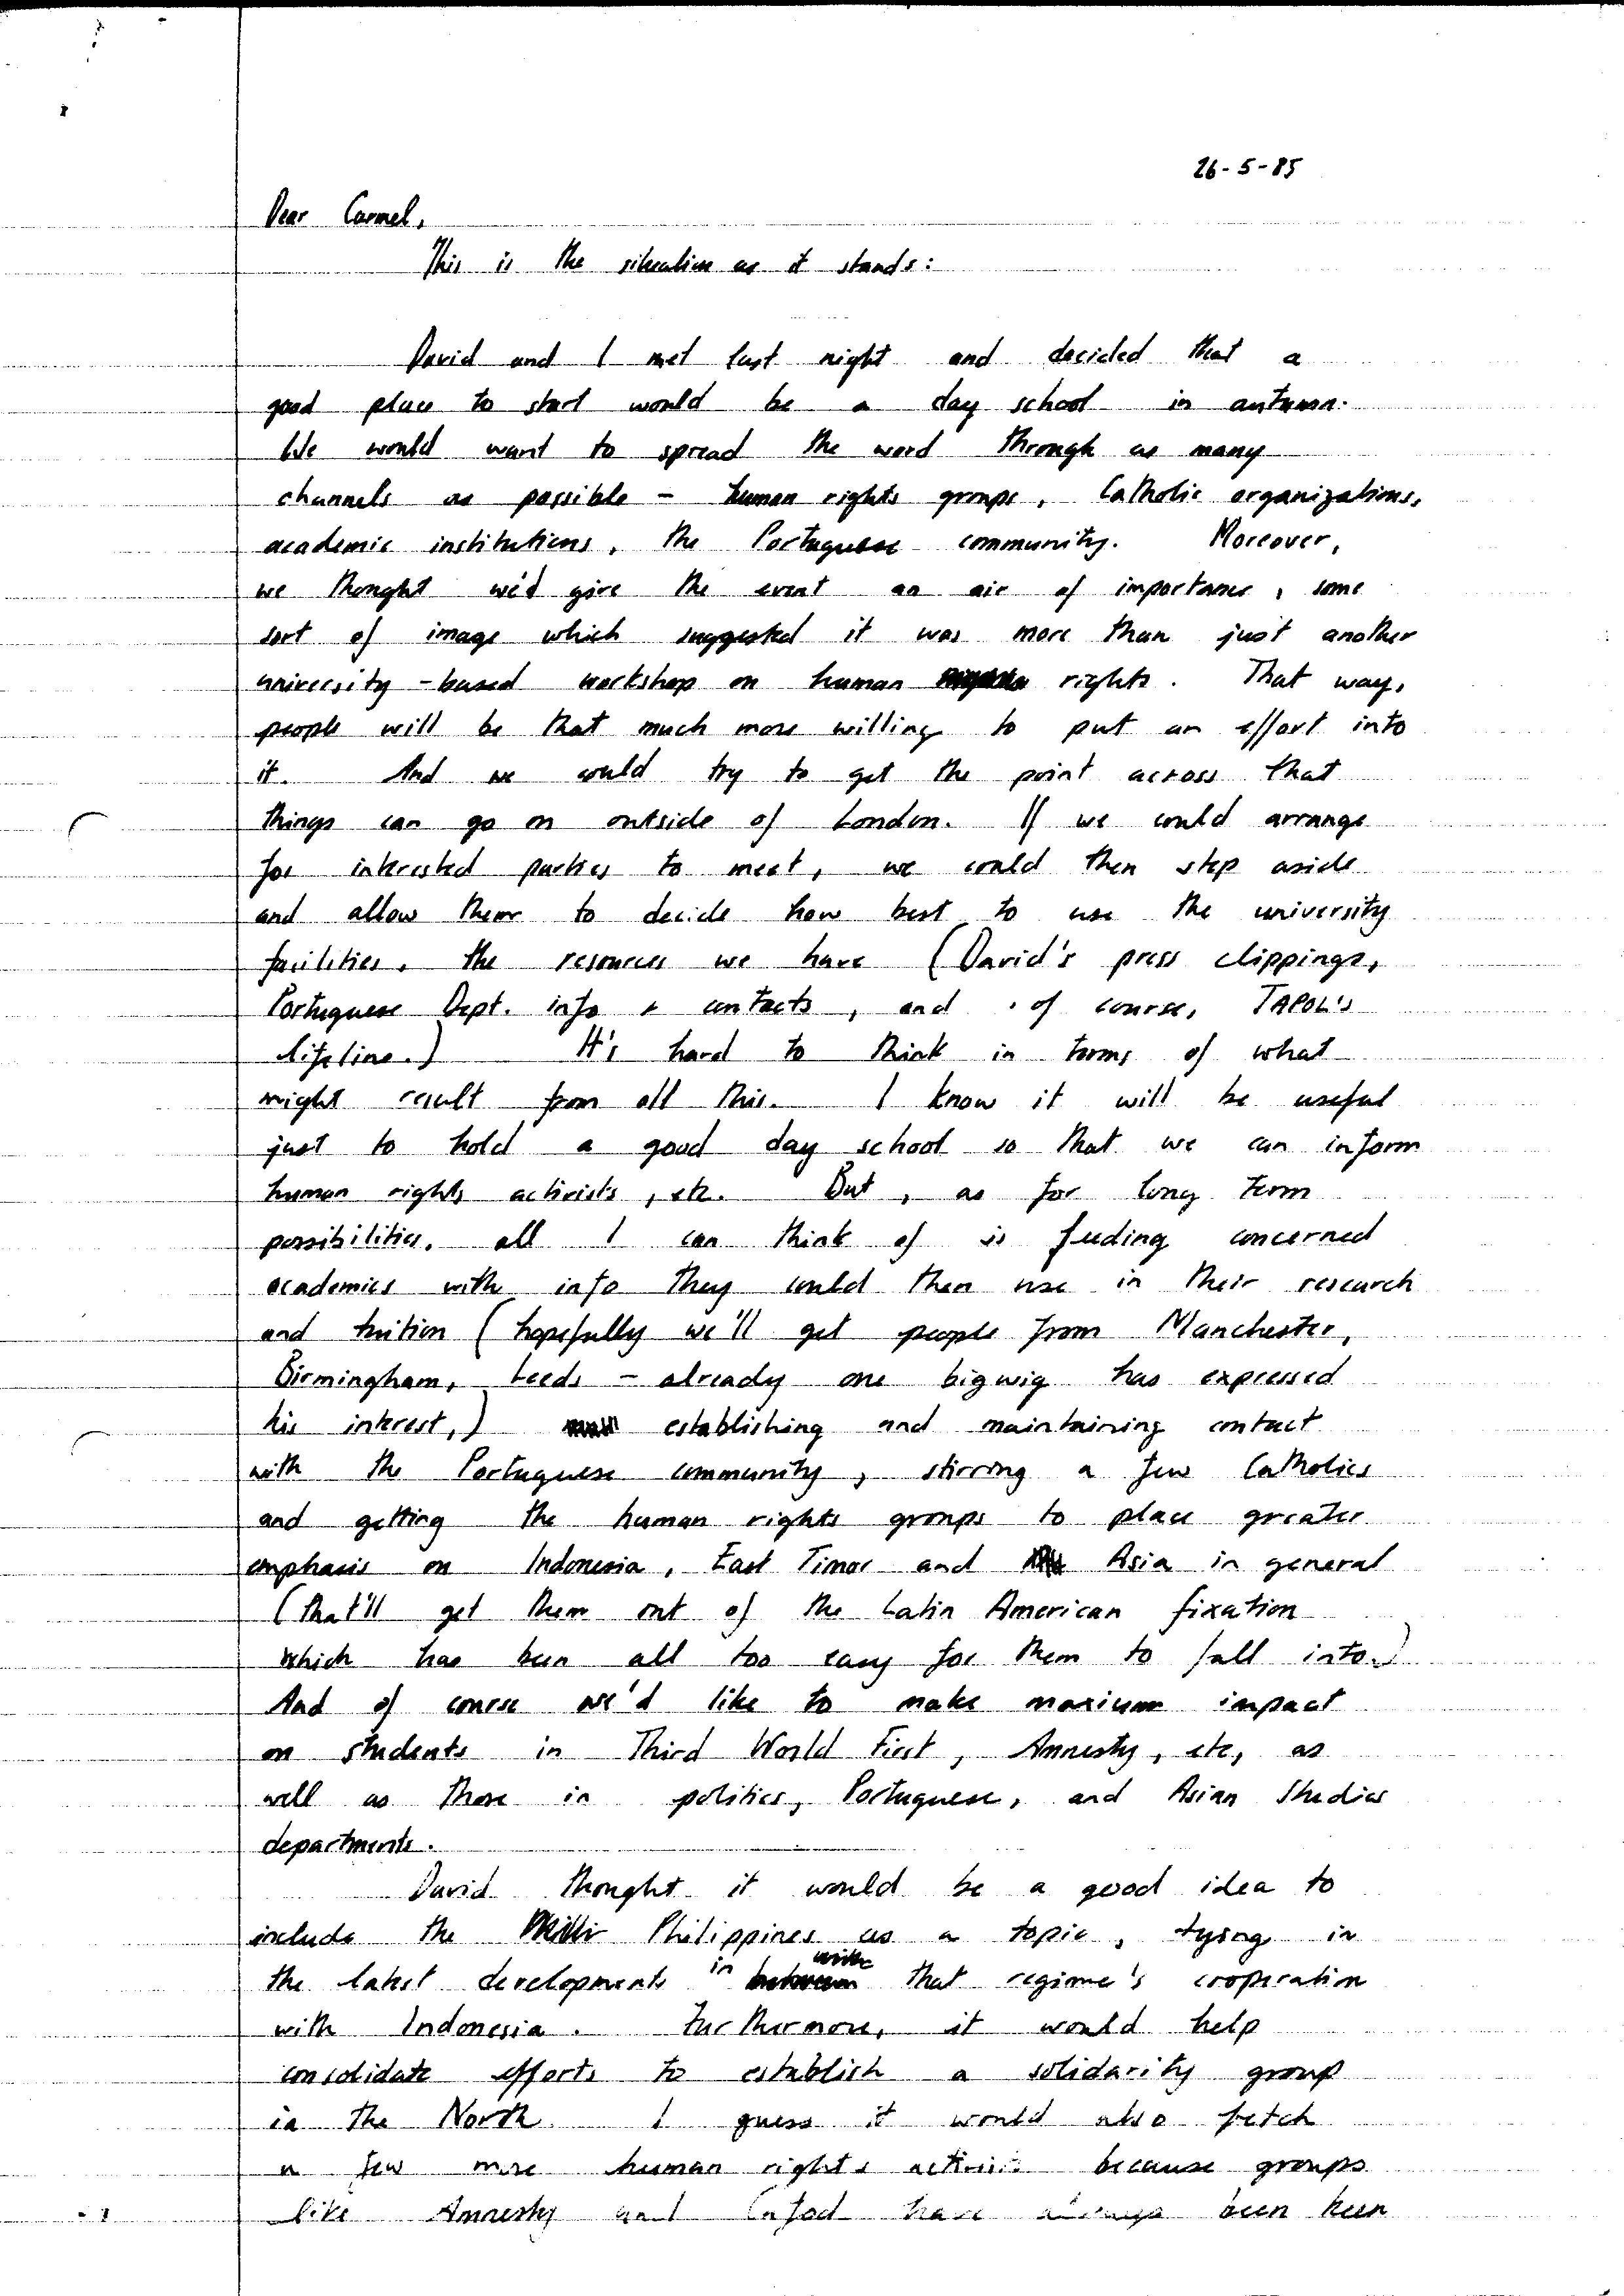 26-5-85
Dear Carmel,
This is the situation as it stands:
David and I met last night and decided that a
good place to start would be a day school in autumn.
We would want to spread the word through as many
channels as possible - human rights groups, Catholic organizations,
academic institutions, the Portuguese community. Moreover,
we thought we'd give the event an air of importance, some
sort of image which suggested it was more than just another
university-based workshop on human rights. That way,
people will be that much more willing to put an effort into
it. And we could try to get the point across that
things can go on outside of London. If we could arrange
for interested parties to meet, we could then step aside
and allow them to decide how best to use the university
facilities, the resources we have (David's press clippings,
Portuguese Dept. info + contacts, and of course, TAPOL's
lifeline.) It's hard to think in terms of what
might result from all this. I know it will be useful
just to hold a good day school so that we can inform
human rights activists, etc. But, as for long term
possibilities, all I can think of is feeding concerned
academics with info they could then use in their research
and tuition (hopefully we'll get people from Manchester,
Birmingham, Leeds - already one bigwig has expressed
his interest,) establishing and maintaining contact
with the Portuguese community, stirring a few Catholics
and getting the human rights groups to place greater
emphasis on Indonesia, East Timor and Asia in general
(that'll get them out of the Latin American fixation
which has been all too easy for them to fall into.)
And of course we'd like to make maxium impact
on students in Third World First, Amnesty, etc, as
well as those in politics, Portuguese, and Asian Studies
departments.
David thought it would be a good idea to
include the Philippines as a topic, tying in
the latest developments in that regime's cooperation
with Indonesia. Furthermore, it would help
consolidate efforts to establish a solidarity group
in the North. I guess it would also fetch
a few more human rights because groups
like Amnesty and Cafod have always been keen